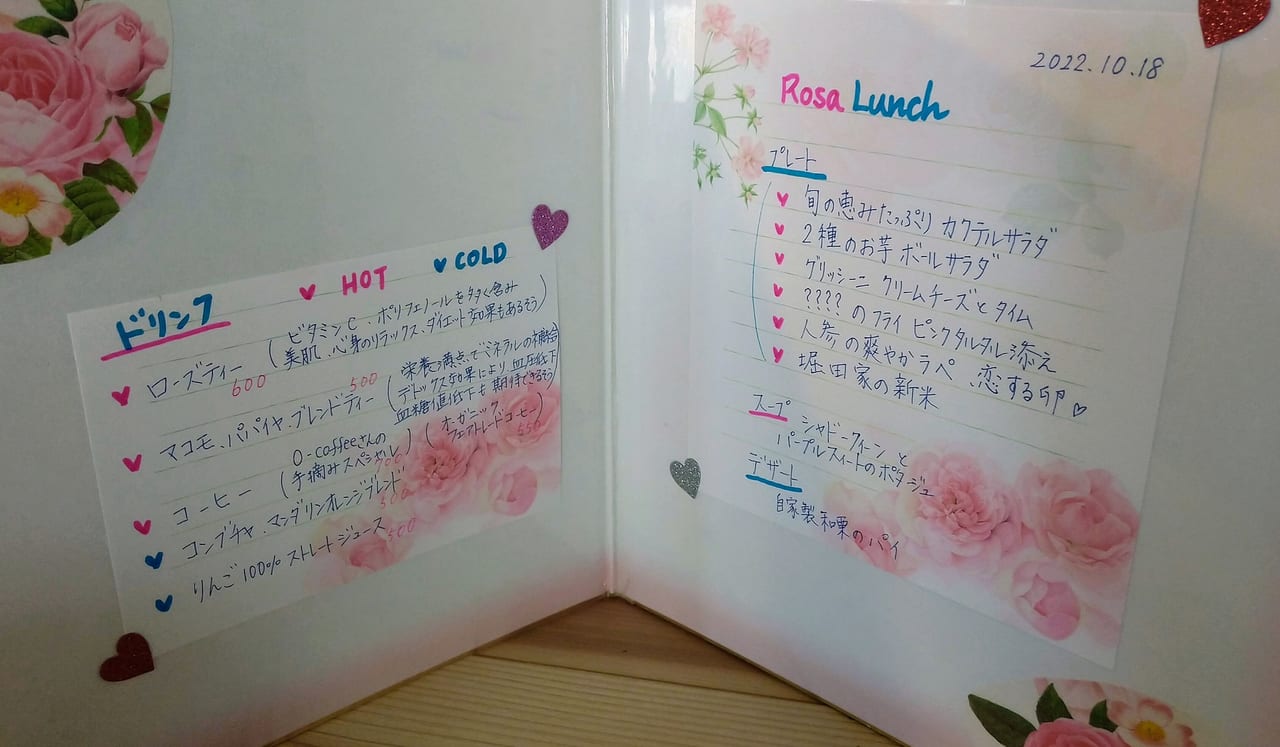 ドリンク
HOT
COLD
ローズティー
(ビタミンC、ポリフェノールを多く含み
美肌、心身のリラックス、ダイエット効果もあるそう)
600
500
マコモ、パパイヤ、ブレンドティー
(栄養満点でミネラルの補給
デトックス効果により血圧低下
血糖値低下も期待できるそう)
コーヒー
(O-coffeeさんの
手摘みスペシャル)
700
(オーガニック
フェアトレードコーヒー)
550
コンブチャ、マンダリンオレンジブレンド
500
りんご100%ストレートジュース
500
2022.10.18
Rosa Lunch
プレート
旬の恵みたっぷり カクテルサラダ
2種のお芋 ボールサラダ
グリッシーニ クリームチーズとタイム
????のフライ ピンクタルタル添え
人参の爽やかラペ 恋する卵
堀田家の新米
スープ
シャドークイーンと
パープルスイートのポタージュ
デザート
自家製和栗のパイ